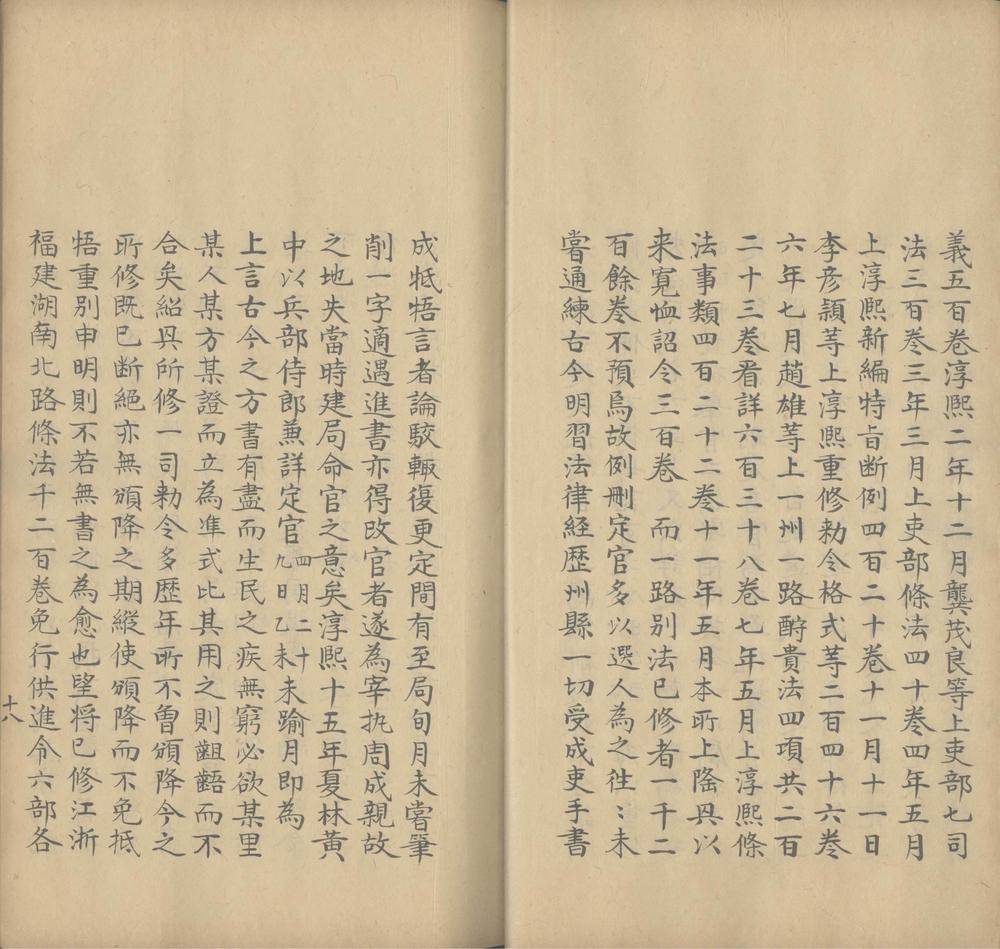 義五百卷淳熙二年十二月龔茂良等上吏部七司
法三百卷三年三月上吏部條法四十卷四年五月
上淳熙新編特旨断例四百二十卷十一月十一日
李彦穎等上淳熙重修勑令格式等二百四十六卷
六年七月趙雄等上一州一路酧貴法四項共二百
二十三卷看詳六百三十八卷七年五月上淳熙條
法事類四百二十二卷十一年五月本所上隆興以
来寛恤詔令三百卷 而一路别法已修者一千二
百餘卷不預焉故例刪定官多以選人為之徃〻未
嘗通練古今明習法律經歷州縣一切受成吏手書
成牴牾言者論駮輙復更定間有至局旬月未嘗筆
削一字適遇進書亦得改官者遂為宰执周成親故
之地失當時建局命官之意矣淳熙十五年夏林黄
中以兵部侍郎兼詳定官四月二十九日乙未未踰月即為
上言古今之方書有盡而生民之疾無窮必欲某里
某人某方某證而立為凖式比其用之則齟齬而不
合矣紹興所修一司勑令多歷年所不曾頒降今之
所修既已断絕亦無頒降之期縱使頒降而不免抵
牾重别申明則不若無書之為愈也望将已修江浙
福建湖南北路條法千二百卷免行供進令六部各
十八